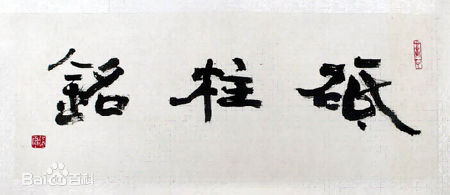 砥柱銘
Baidu百科